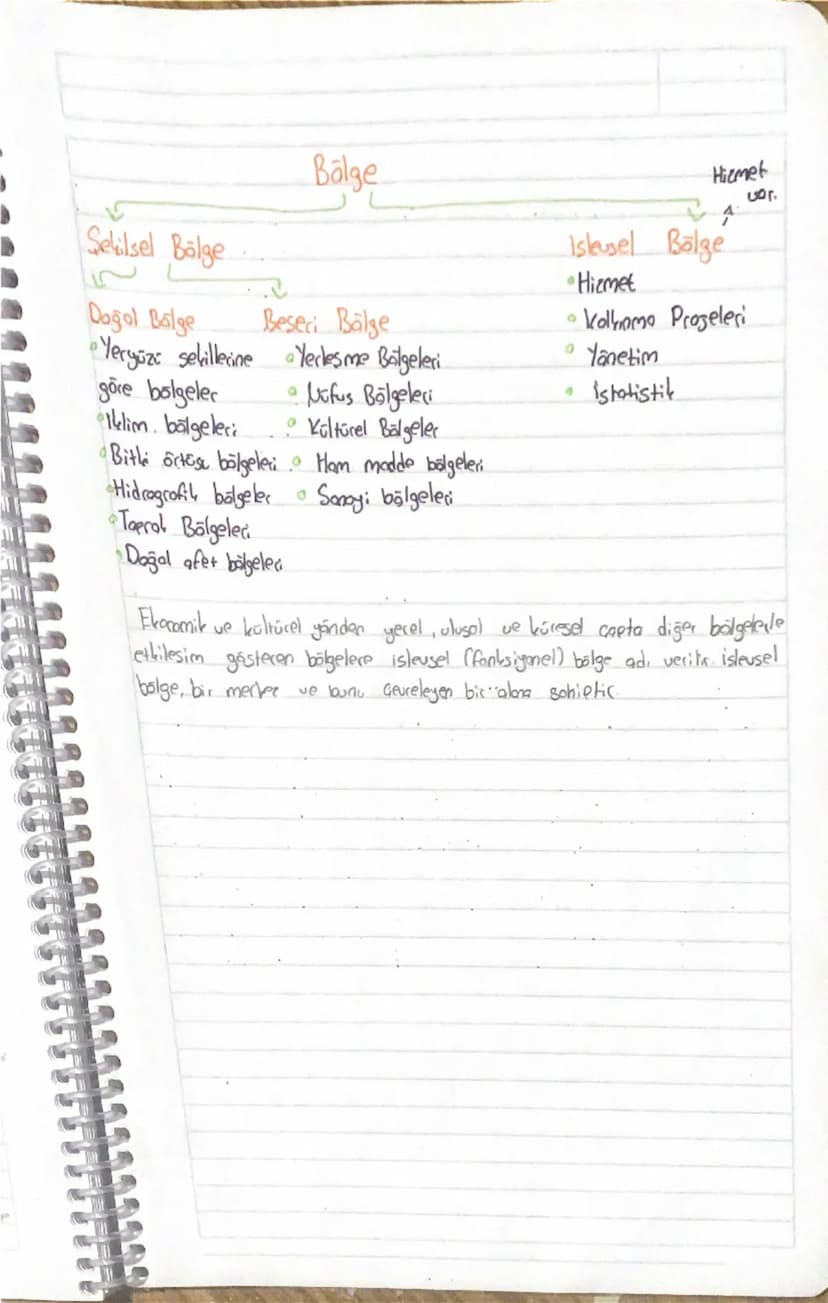 Bölge
Hizmet
var.
Şekilsel Bölge
İşlevsel Bölge
Doğal Bölge
Beşeri Bölge
• Hizmet
• Kalkınma Projeleri
• Yönetim
• İstatistik
• Yeryüzü şekillerine
göre bölgeler
• İklim bölgeleri
• Bitki örtüsü bölgeleri
• Hidrografik bölgeler
• Toprak Bölgeleri
• Doğal afet bölgeleri
• Yerleşme Bölgeleri
• Nüfus Bölgeleri
• Kültürel Bölgeler
• Ham madde bölgeleri
• Sanayi bölgeleri
Ekonomik ve kültürel yönden yerel, ulusal ve küresel çapta diğer bölgelerle
etkileşim gösteren bölgelere işlevsel (fonksiyonel) bölge adı verilir. işlevsel
bölge, bir merkez ve bunu çevreleyen bir alana sahiptir.